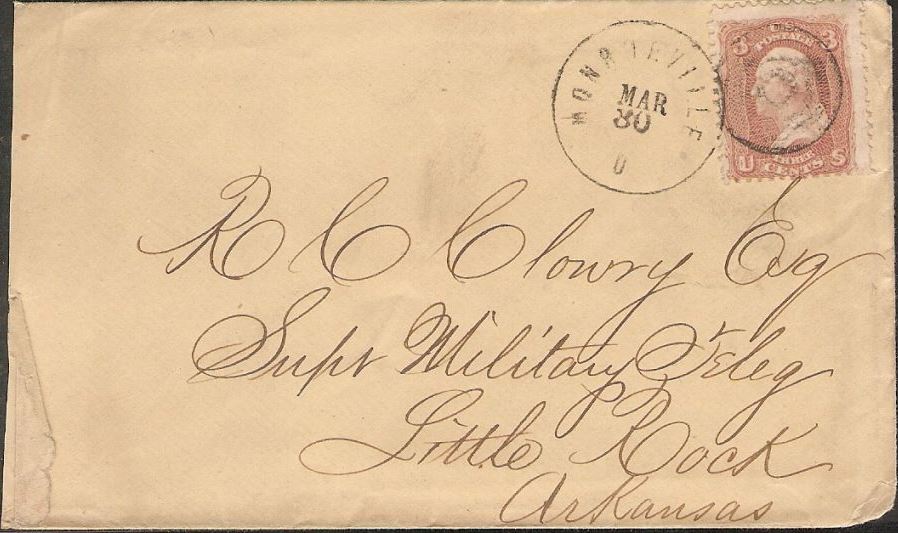 MONROEVILLE
MAR
30
O
3 POSTAGE 3
U THREE CENTS S
R C Clowry Esq
Supt Military Teleg
Little Rock
Arkansas